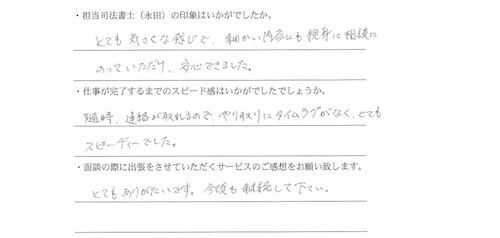 ・担当司法書士（永田）の印象はいかがでしたか。
とても気さくな感じで、細かい内容にも親身に相談に
のっていただけ、安心できました。
・仕事が完了するまでのスピード感はいかがでしたでしょうか。
随時、連絡が取れるので、やり取りにタイムラグがなく、とても
スピーディーでした。
・面談の際に出張をさせていただくサービスのご感想をお願い致します。
とてもありがたいです。今後も継続して下さい。